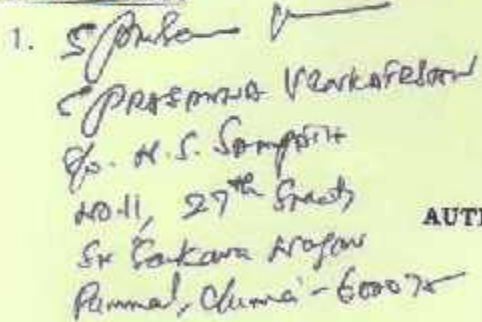 1.
S PRASANNA VENKATESAN
S/o. N.S. Sampath
NO-11, 27th Street
Sri Sankara Nagar
Pammal, Chennai - 600075
AUTH